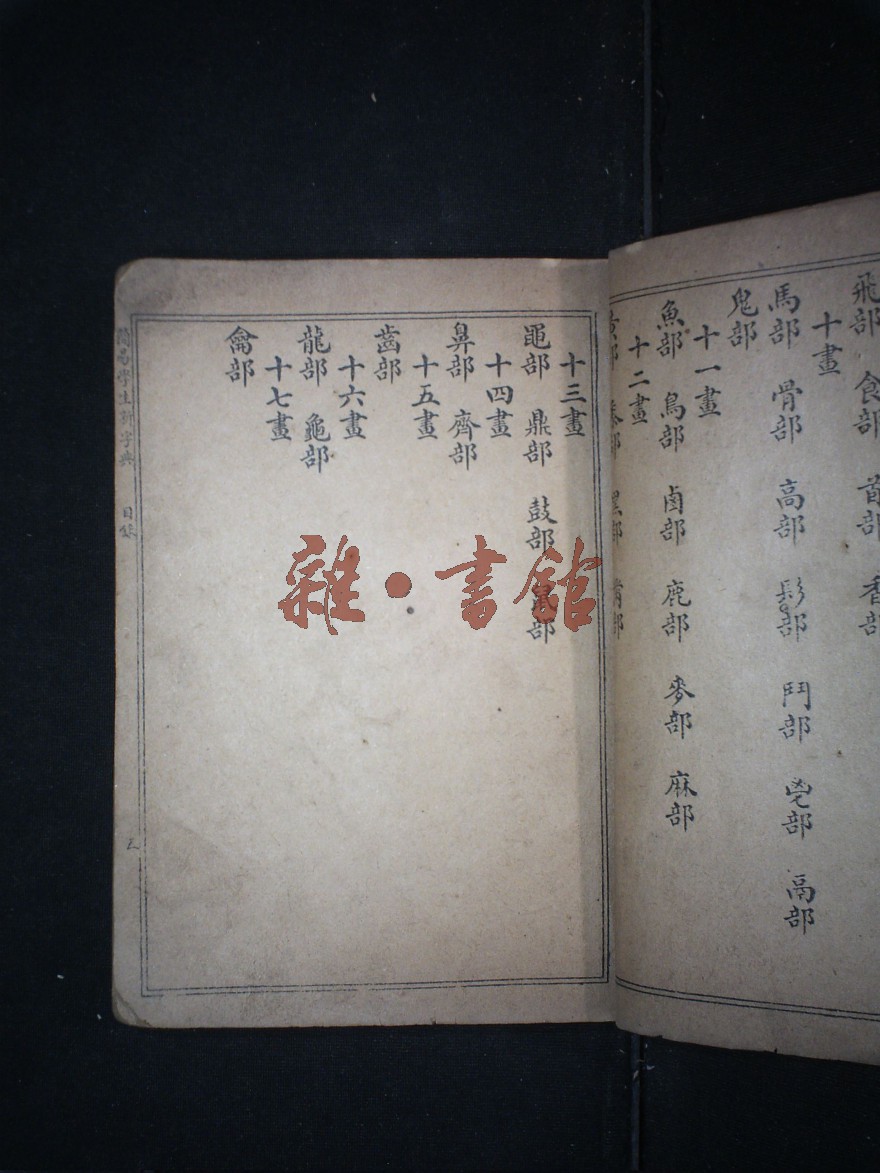 飛部 食部 首部 香部
十畫
馬部 骨部 高部 髟部 鬥部 鬯部 鬲部
鬼部
十一畫
魚部 鳥部 鹵部 鹿部 麥部 麻部
十二畫
黃部 黍部 黑部 黹部
十三畫
黽部 鼎部 鼓部 鼠部
十四畫
鼻部 齊部
十五畫
齒部
十六畫
龍部 龜部
十七畫
龠部
簡易學生新字典 目錄
雜·書館